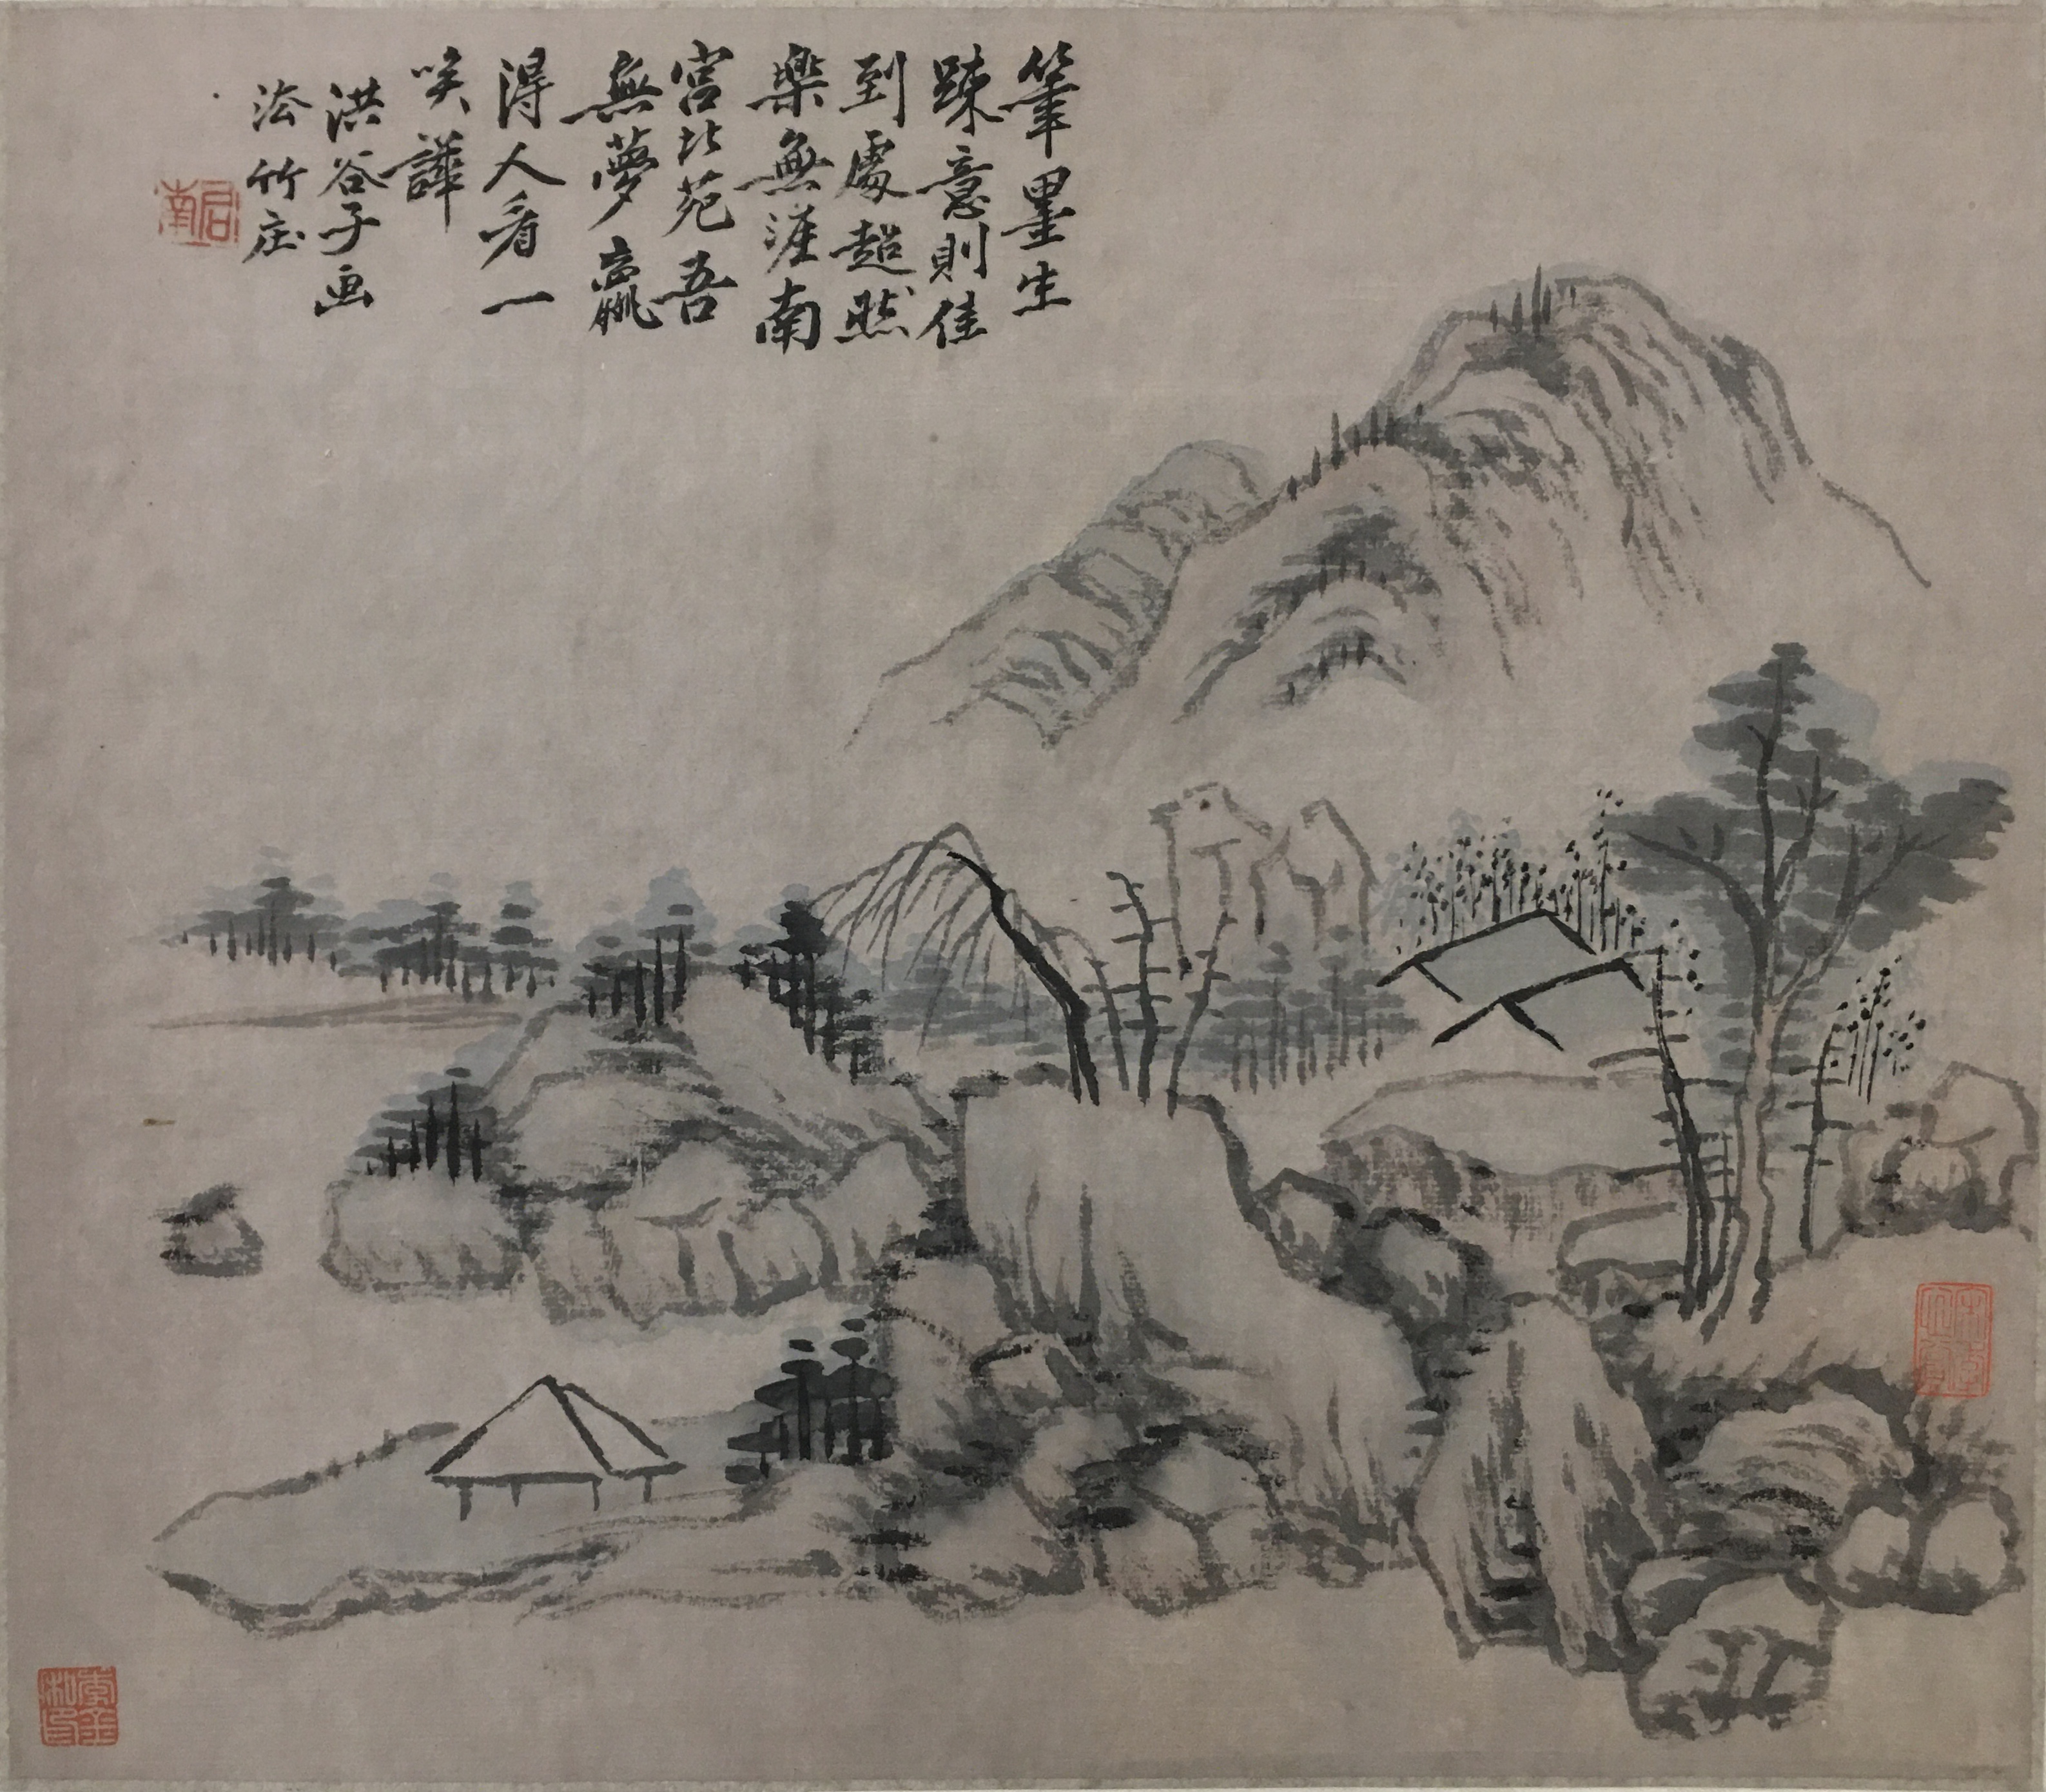 筆墨生
踈意則佳
到處超然
樂無涯南
宮北苑吾
無夢贏
得人看一
唉譁
洪谷子画
法竹庄
君南